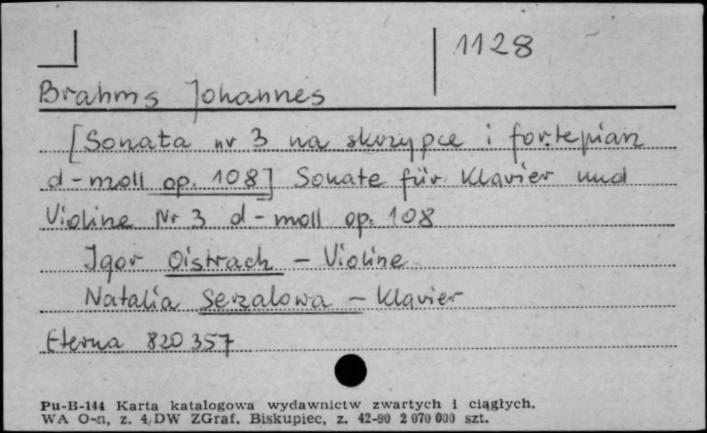 1128
Brahms Johannes
[Sonata nr 3 na skrzypce i fortepian
d-moll op. 108] Sonate für Klavier und
Violine Nr 3 d-moll op. 108
Igor Oistrach - Violine
Natalia Serzalowa - Klavier
Eterna 820 357
Pu-B-144 Karta katalogowa wydawnictw zwartych i ciągłych.
WA O-n, z. 4/DW ZGraf. Biskupiec, z. 42-90 2 070 000 szt.